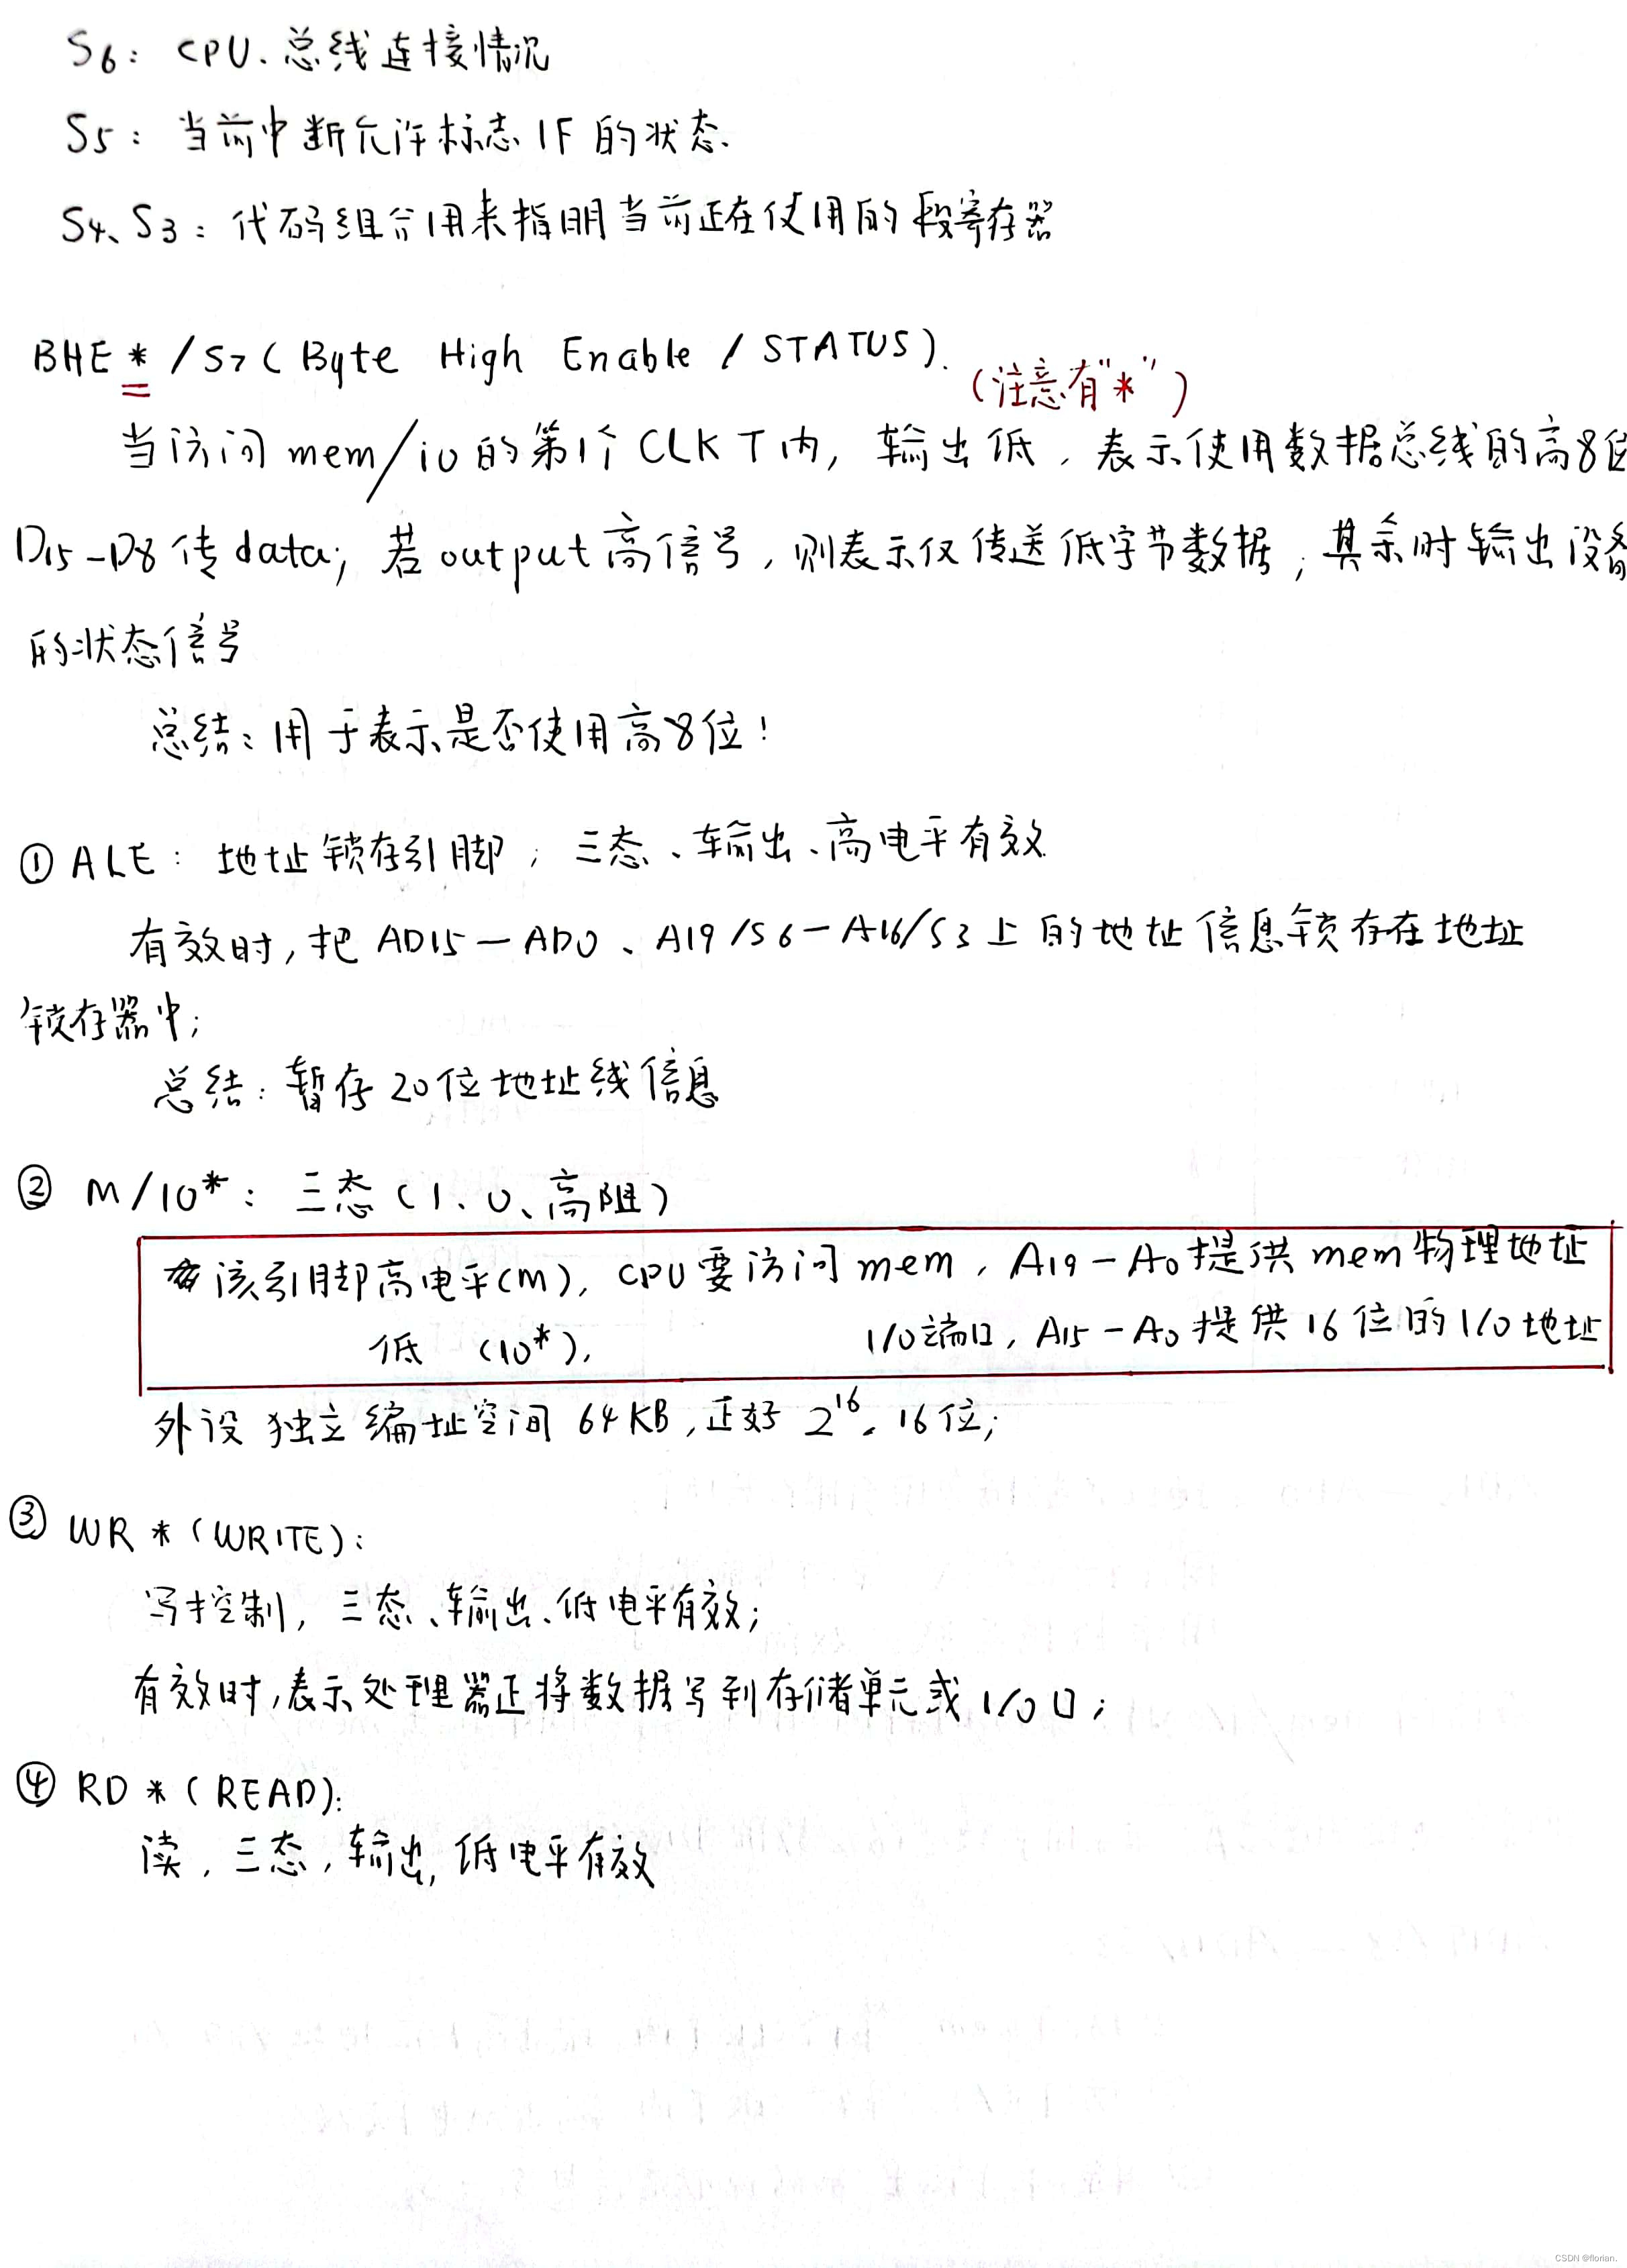 S6: CPU、总线连接情况
S5: 当前中断允许标志IF的状态.
S4、S3: 代码组合用来指明当前正在使用的段寄存器
BHE* /S7 (Byte High Enable / STATUS).
(注意有"*")
当访问mem/io的第1个CLK T内, 输出低, 表示使用数据总线的高8位
D15-D8传data; 若output高信号, 则表示仅传送低字节数据; 其余时输出设备
的状态信号
总结: 用于表示是否使用高8位!
① ALE: 地址锁存引脚; 三态、输出、高电平有效
有效时, 把AD15-AD0、A19/S6-A16/S3上的地址信息锁存在地址
锁存器中;
总结: 暂存20位地址线信息
② M/IO*: 三态(1、0、高阻)
该引脚高电平(M), CPU要访问mem, A19-A0提供mem物理地址
低 (IO*), I/O端口, A15-A0提供16位的I/O地址
外设独立编址空间64KB, 正好2^16, 16位;
③ WR*(WRITE):
写控制, 三态、输出、低电平有效;
有效时, 表示处理器正将数据写到存储单元或I/O口;
④ RD*(READ):
读, 三态, 输出, 低电平有效
CSDN @florian.